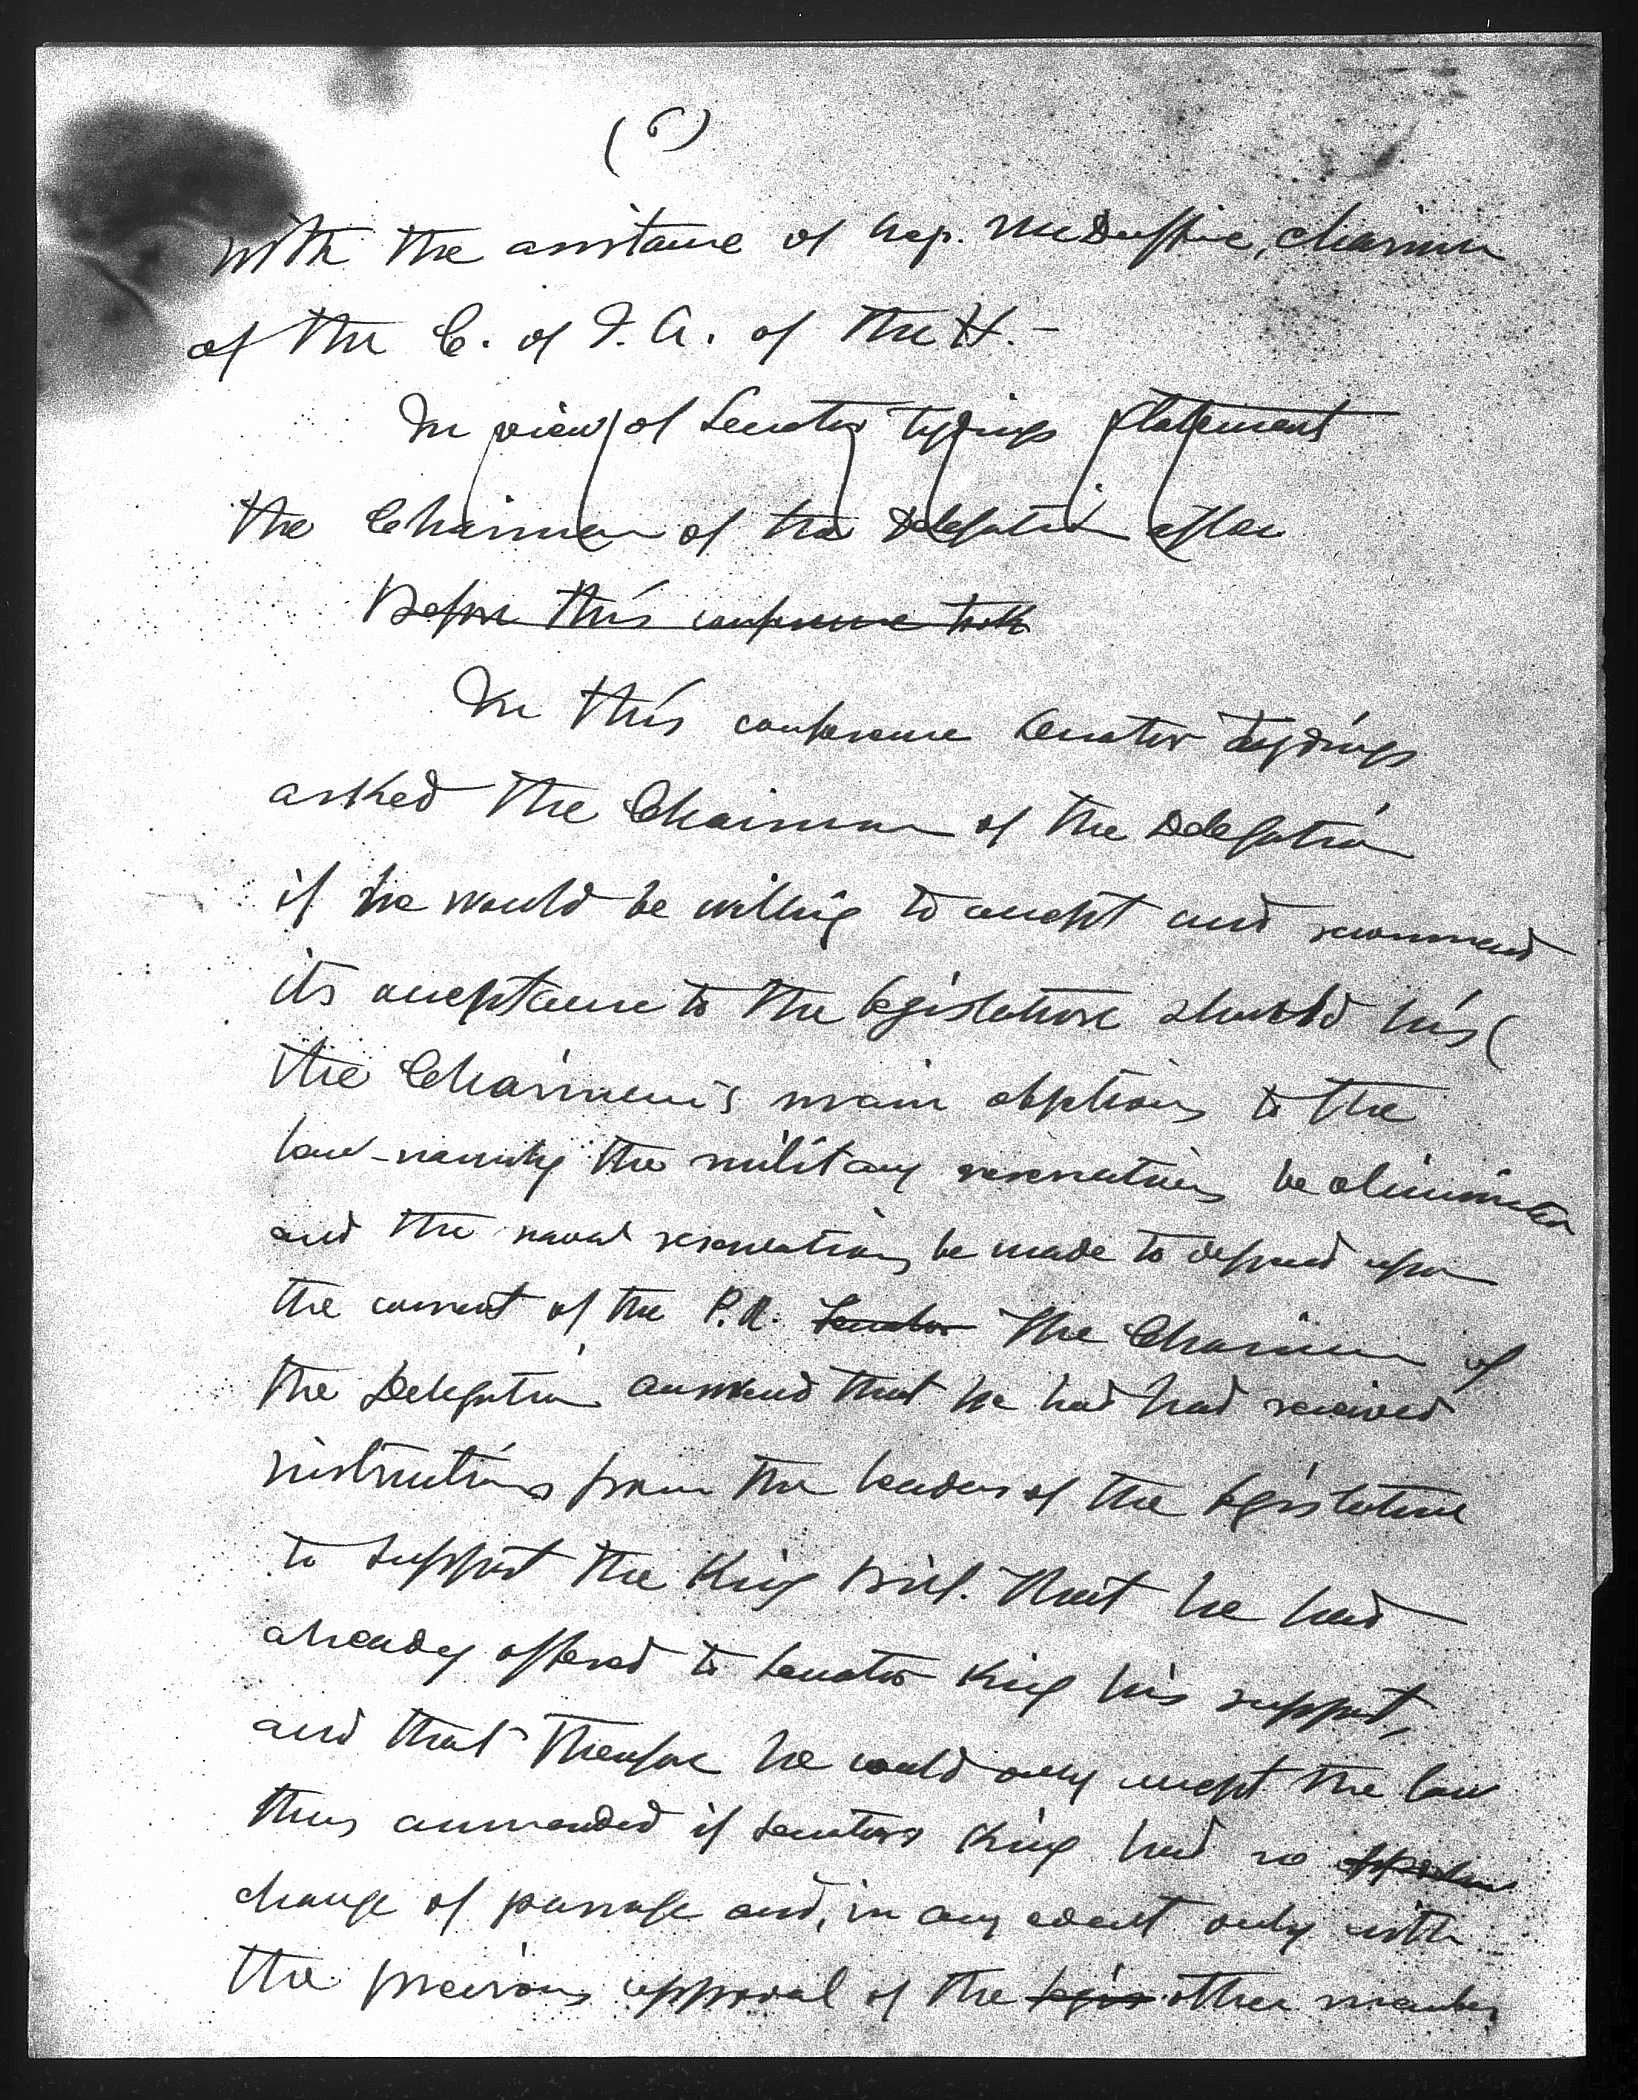 (6)
with the assistance of Rep. McDuffie, chairman
of the C. of I. A. of the H. -
In view of Senator Tydings statement
the Chairman of the Delegation after
Before this conference took
In this conference Senator Tydings
asked the Chairman of the Delegation
if he would be willing to accept and recommend
its acceptance to the legislature should his (
the Chairman's main objections to the
law - namely the military reservations be eliminated
and the naval reservations be made to depend upon
the consent of the P.I. Senator The Chairman of
the Delegation answered that he had had received
instructions from the leaders of the legislature
to support the King Bill. That he had
already offered to Senator King his support,
and that therefore he could only accept the law
thus ammended if Senator King had no
change of passage and, in any event only with
the previous approval of the legis other members